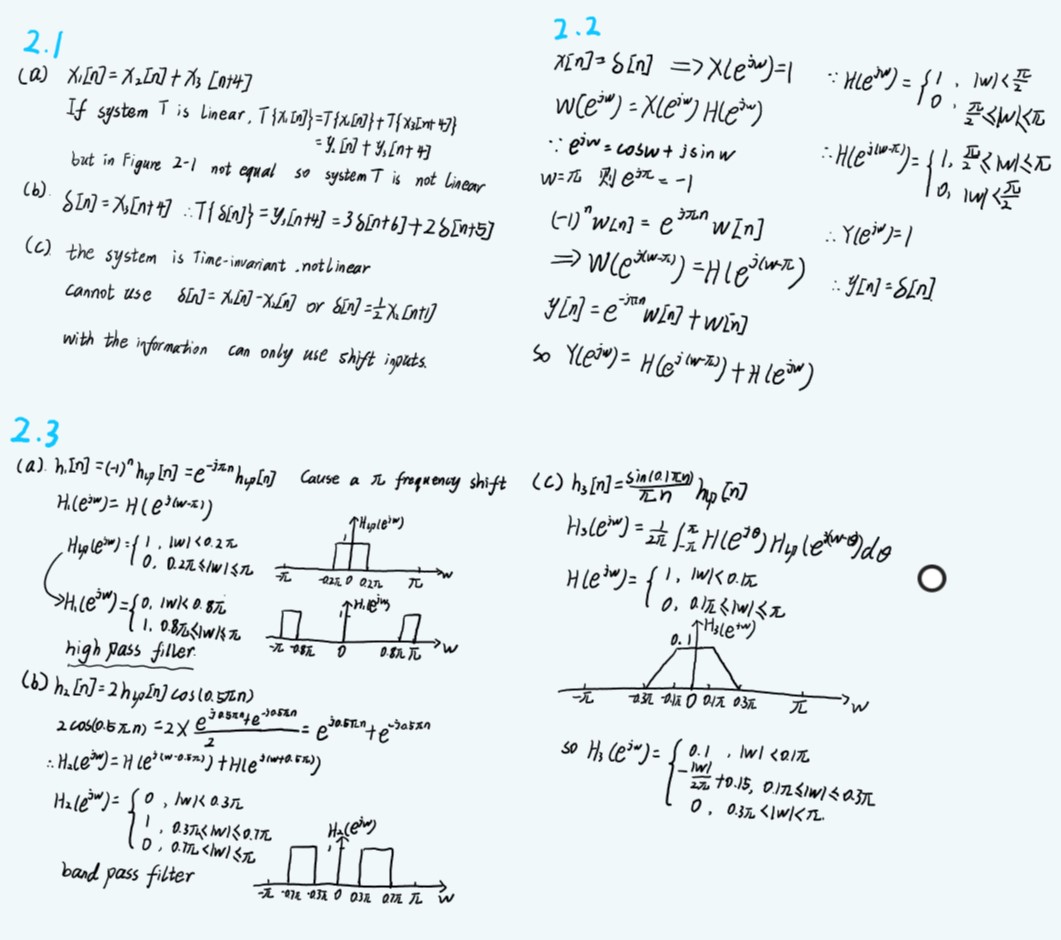 2.1
(a) x₁[n] = x₂[n] + x₃[n+4]
If system T is linear, T{x₁[n]} = T{x₂[n]} + T{x₃[n+4]}
= y₂[n] + y₃[n+4]
but in Figure 2-1 not equal so system T is not linear
(b). δ[n] = x₃[n+4] ∴ T{δ[n]} = y₃[n+4] = 3δ[n+6] + 2δ[n+5]
(c). the system is Time-invariant, not linear
cannot use δ[n] = x₁[n] - x₂[n] or δ[n] = ½x₂[n+1]
with the information can only use shift inputs.
2.2
x[n] = δ[n] ⇒ X(e^{jw}) = 1
W(e^{jw}) = X(e^{jw}) H(e^{jw})
∵ e^{jw} = cosw + jsinw
w = π 则 e^{jπ} = -1
(-1)ⁿ w[n] = e^{jπn} w[n]
⇒ W(e^{j(w-π)}) = H(e^{j(w-π)})
y[n] = e^{-jπn} w[n] + w[n]
so Y(e^{jw}) = H(e^{j(w-π)}) + H(e^{jw})
∵ H(e^{jw}) = { 1, |w| < π/2
0, π/2 ≤ |w| ≤ π
∴ H(e^{j(w-π)}) = { 1, π/2 ≤ |w| ≤ π
0, |w| < π/2
∴ Y(e^{jw}) = 1
∴ y[n] = δ[n]
2.3
(a). h₁[n] = (-1)ⁿ h_{lp}[n] = e^{-jπn} h_{lp}[n] Cause a π frequency shift
H₁(e^{jw}) = H(e^{j(w-π)})
H_{lp}(e^{jw}) = { 1, |w| < 0.2π
0, 0.2π ≤ |w| ≤ π
H_{lp}(e^{jw})
1
-π -0.2π 0 0.2π π w
H₁(e^{jw}) = { 0, |w| < 0.8π
1, 0.8π ≤ |w| ≤ π
H₁(e^{jw})
-π -0.8π 0 0.8π π w
high pass filler
(b) h₂[n] = 2h_{lp}[n] cos(0.5πn)
2cos(0.5πn) = 2 × (e^{j0.5πn} + e^{-j0.5πn})/2 = e^{j0.5πn} + e^{-j0.5πn}
∴ H₂(e^{jw}) = H(e^{j(w-0.5π)}) + H(e^{j(w+0.5π)})
H₂(e^{jw}) = { 0, |w| < 0.3π
1, 0.3π ≤ |w| ≤ 0.7π
0, 0.7π < |w| ≤ π
H₂(e^{jw})
1
-π -0.7π -0.3π 0 0.3π 0.7π π w
band pass filter
(c) h₃[n] = sin(0.1πn)/πn h_{lp}[n]
H₃(e^{jw}) = 1/2π ∫_{-π}^{π} H(e^{jθ}) H_{lp}(e^{j(w-θ)}) dθ
H(e^{jw}) = { 1, |w| < 0.1π
0, 0.1π ≤ |w| ≤ π
H₃(e^{jw})
0.1
-π -0.3π -0.1π 0 0.1π 0.3π π w
so H₃(e^{jw}) = { 0.1, |w| < 0.1π
-|w|/2π + 0.15, 0.1π ≤ |w| ≤ 0.3π
0, 0.3π < |w| < π.